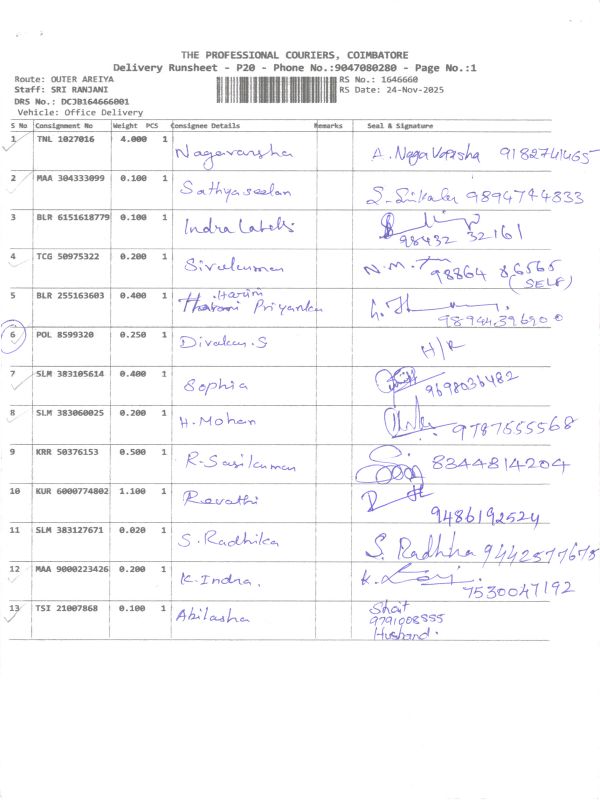 THE PROFESSIONAL COURIERS, COIMBATORE
Delivery Runsheet - P20 - Phone No.:9047080280 - Page No.:1
Route: OUTER AREIYA
RS No.: 1646660
Staff: SRI RANJANI
RS Date: 24-Nov-2025
DRS No.: DCJB164666001
Vehicle: Office Delivery
S No Consignment No Weight PCS Consignee Details Remarks Seal & Signature
1 TNL 1027016 4.000 1 Nagavarsha A. Naga Varsha 9182741465
2 MAA 304333099 0.100 1 Sathyaseelan 9894744833
3 BLR 6151618779 0.100 1 Indra Labels
98432 32161
4 TCG 50975322 0.200 1 Sivakumar N.M. 98864 86565
(SELF)
5 BLR 255163603 0.400 1 Harini Priyanka
6 POL 8599320 0.250 1 Divakar.S H/R
7 SLM 383105614 0.400 1 Sophia 9698036482
8 SLM 383060025 0.200 1 H. Mohan 9787555568
9 KRR 50376153 0.500 1 R. Sasikumar 8344814204
10 KUR 6000774802 1.100 1 Revathi
9486192524
11 SLM 383127671 0.020 1 S. Radhika S. Radhika 9442577675
12 MAA 9000223426 0.200 1 K. Indra. K.
7530047192
13 TSI 21007868 0.100 1 Abilasha
9791008555
Husband.